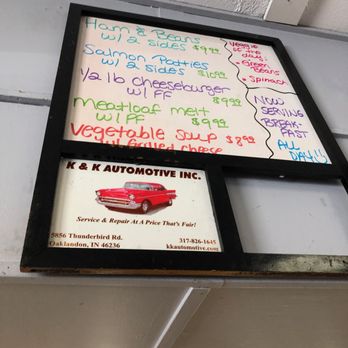 Ham & Beans
w/ 2 sides $9.99
Salmon Patties
w/ 2 sides $10.99
1/2 lb Cheeseburger
w/ FF $9.99
Meatloaf melt
w/ FF $9.99
Vegetable Soup $8.99
w/ Grilled cheese
Veggie
of the
day:
• Green
Beans
• Spinach
NOW
SERVING
BREAK-
FAST
ALL
DAY!!
K & K AUTOMOTIVE INC.
Service & Repair At A Price That's Fair!
5856 Thunderbird Rd. 317-826-1645
Oaklandon, IN 46236 kkautomotive.com